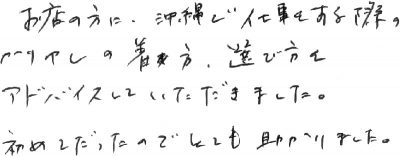 お店の方に、沖縄で仕事をする際の
かりゆしの着方、選び方を
アドバイスしていただきました。
初めてだったのでとても助かりました。